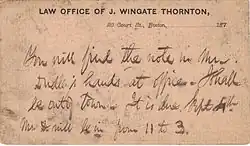 LAW OFFICE OF J. WINGATE THORNTON,
20 Court St., Boston, 187
You will find the note in Mr.
Dudley's hands at office - I shall
be out of town - It is due Sept
Mr. will be in from 11 to 3.